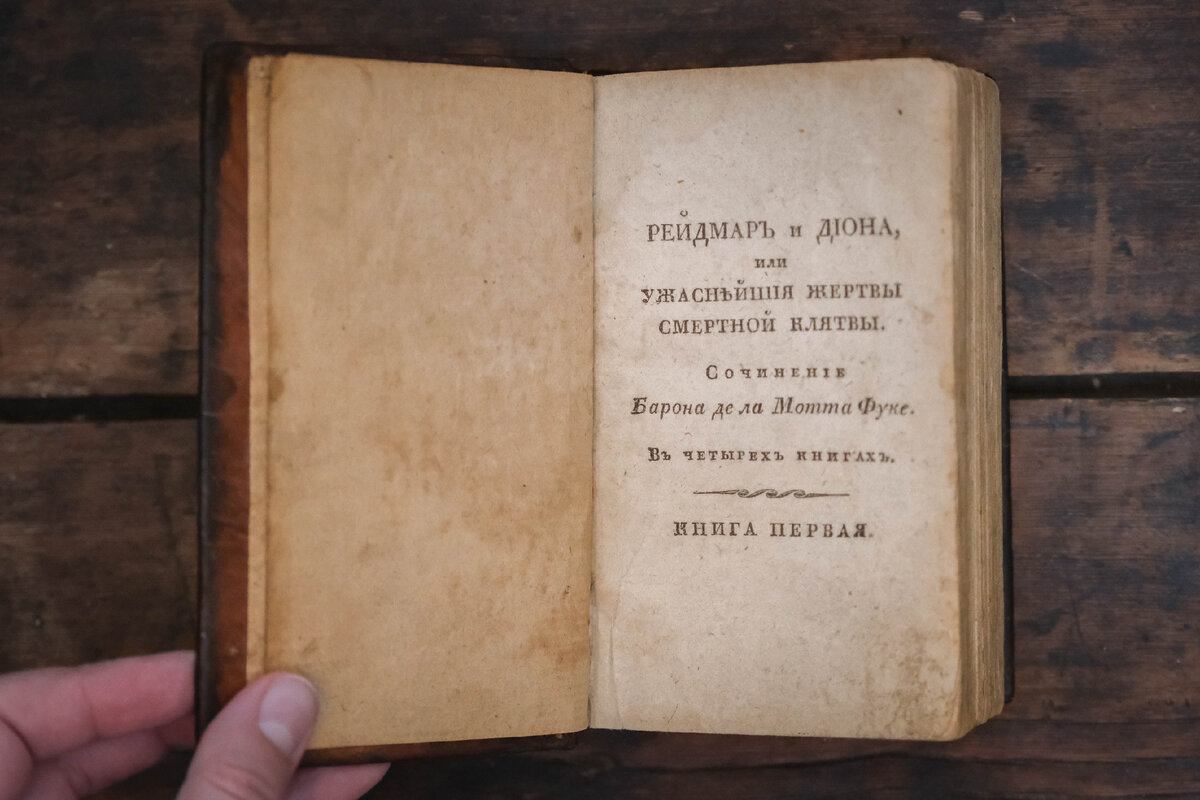 РЕЙДМАРЪ и ДІОНА,
или
УЖАСНѢЙШІЯ ЖЕРТВЫ
СМЕРТНОЙ КЛЯТВЫ.
Сочиненіе
Барона де ла Мотта Фуке.
Въ четырехъ книгахъ.
КНИГА ПЕРВАЯ.